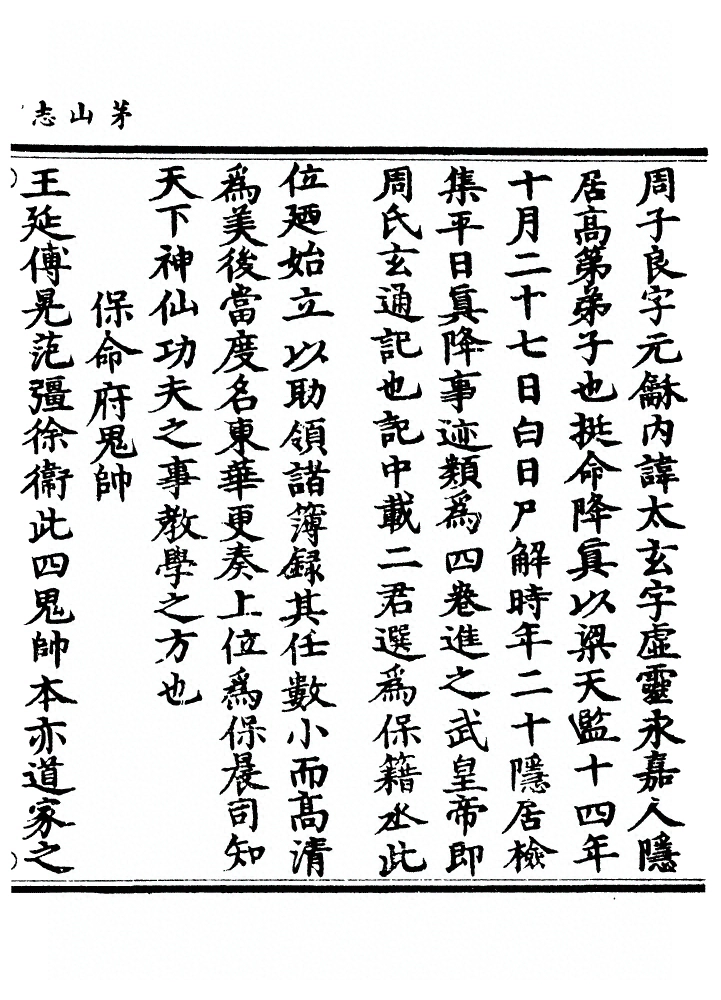 茅山志
周子良字元龢内諱太玄字虚靈永嘉人隱
居高第弟子也挺命降真以梁天監十四年
十月二十七日白日尸解時年二十隱居檢
集平日真降事迹類爲四卷進之武皇帝即
周氏玄通記也記中載二君選爲保籍丞此
位廼始立以助領諸簿録其任數小而髙清
爲美後當度名東華更奏上位爲保晨司知
天下神仙功夫之事教學之方也
保命府鬼帥
王延傅晃范彊徐衛此四鬼帥本亦道家之